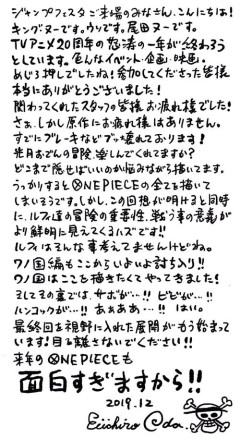 ジャンプフェスタご来場のみなさん、こんにちは!
キング・ヌーです。ウソです。尾田ヌーです。
TVアニメ20周年の怒涛の一年が終わろう
としています。色んなイベント・企画・映画。
めじろ押しでしたね!参加してくださった皆様
本当にありがとうございました!
関わってくれたスタッフの皆様お疲れ様でした!
さぁ、しかし原作にお疲れ様はありません。
すでにブレーキなどブッ壊れております!
光月おでんの冒険、楽しんでくれてますか?
どこまで隠せばいいのか悩みながら描いてます。
うっかりすると ONE PIECEの全てを描いて
しまいそうです。しかし、この回想が明けると同時
に、ルフィ達の冒険の重要性、戦う事の意義が
より鮮明に見えてくるハズです!!
ルフィはそんな事考えてませんけどね。
ワノ国編もここからいよいよ討ち入り!!
ワノ国はここを描きたくてやってきました!
そしてその裏では、サボが…!! ビビが…!!
ハンコックが…!! あぁああ…!! はい。
最終回を視野に入れた展開がもう始まって
います!目を離さないでください!!
来年の ONE PIECEも
面白すぎますから!!
2019.12
Eiichiro Oda.